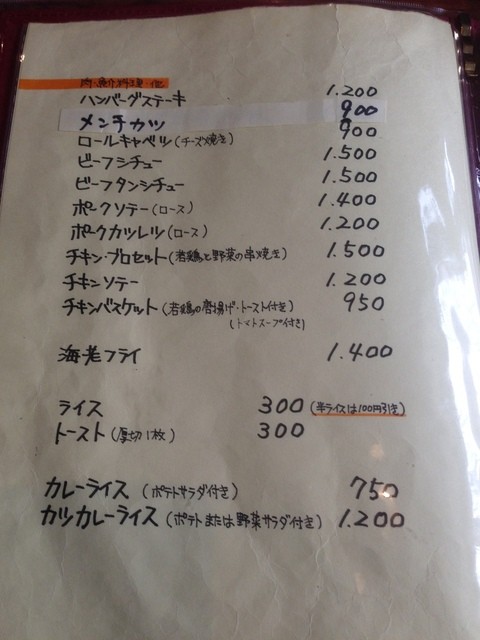 肉・魚介料理・他
ハンバーグステーキ 1.200
メンチカツ 900
ロールキャベツ(チーズ焼き) 900
ビーフシチュー 1.500
ビーフタンシチュー 1.500
ポークソテー(ロース) 1.400
ポークカツレツ(ロース) 1.200
チキン・ブロセット(若鶏と野菜の串焼き) 1.500
チキンソテー 1.200
チキンバスケット(若鶏の唐揚げ・トースト付き) 950
(トマトスープ付き)
海老フライ 1.400
ライス 300 (半ライスは100円引き)
トースト(厚切1枚) 300
カレーライス(ポテトサラダ付き) 750
カツカレーライス(ポテトまたは野菜サラダ付き) 1.200